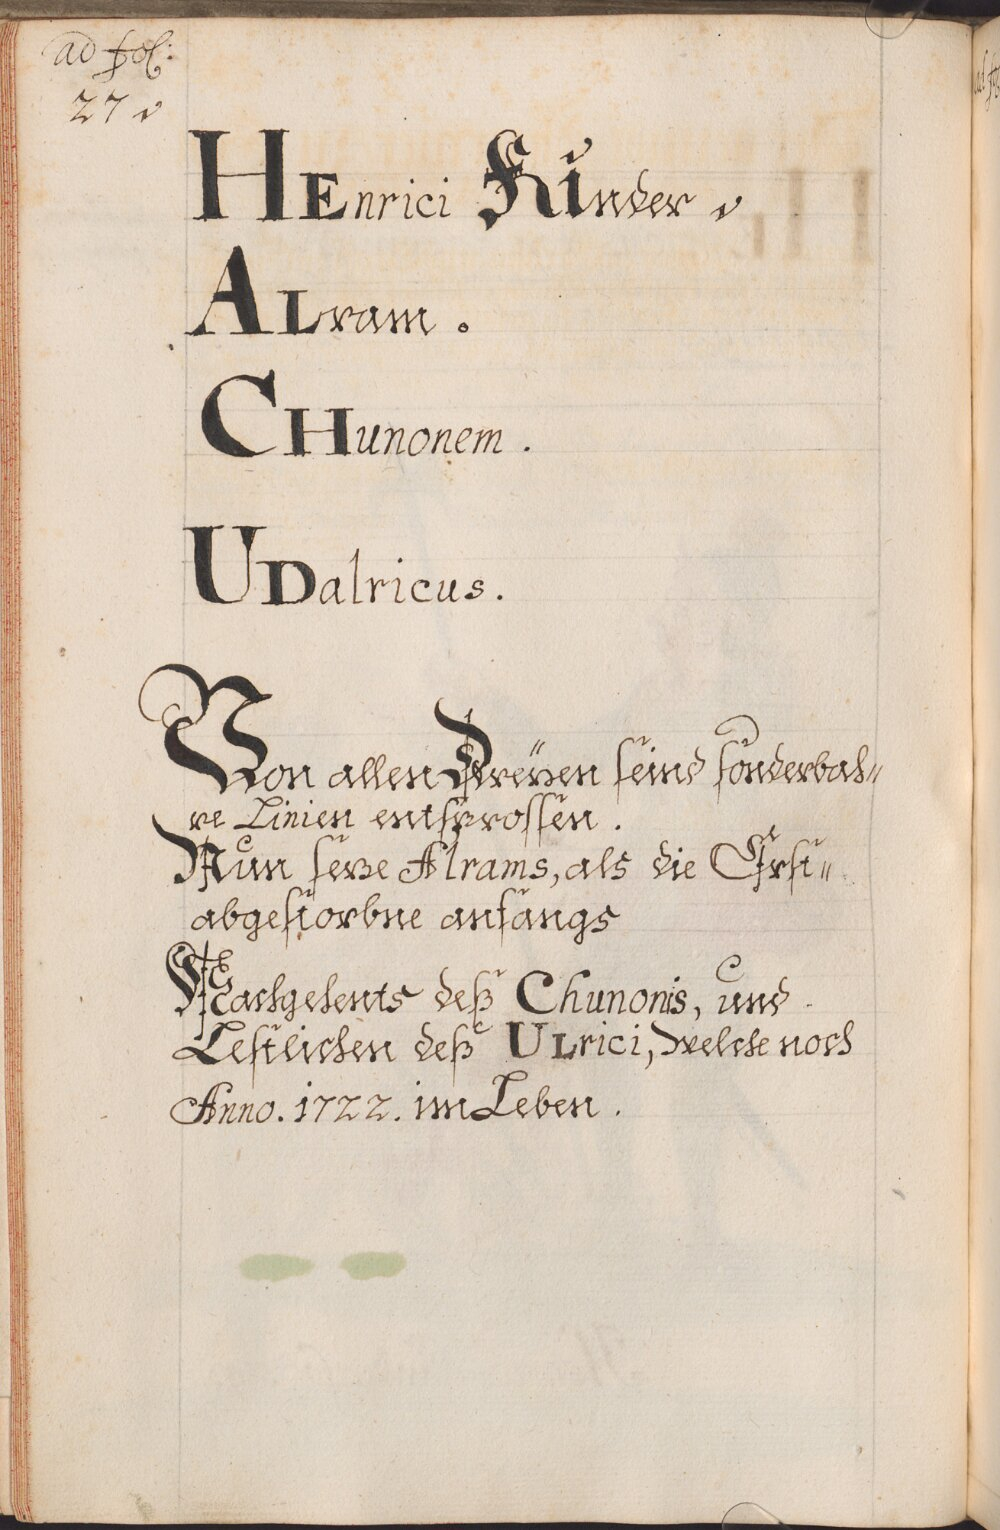 ad fol:
27
HEnrici Kinder
ALram.
CHunonem.
UDalricus.
Von allen Dreÿen seind sonderbah=
re Linien entsprossen.
Nun seze Alrams, als die Erst=
abgestorbne anfangs
Nachgehents deß Chunonis, und
Lestlichen deß ULrici, welche noch
Anno. 1722. im Leben.